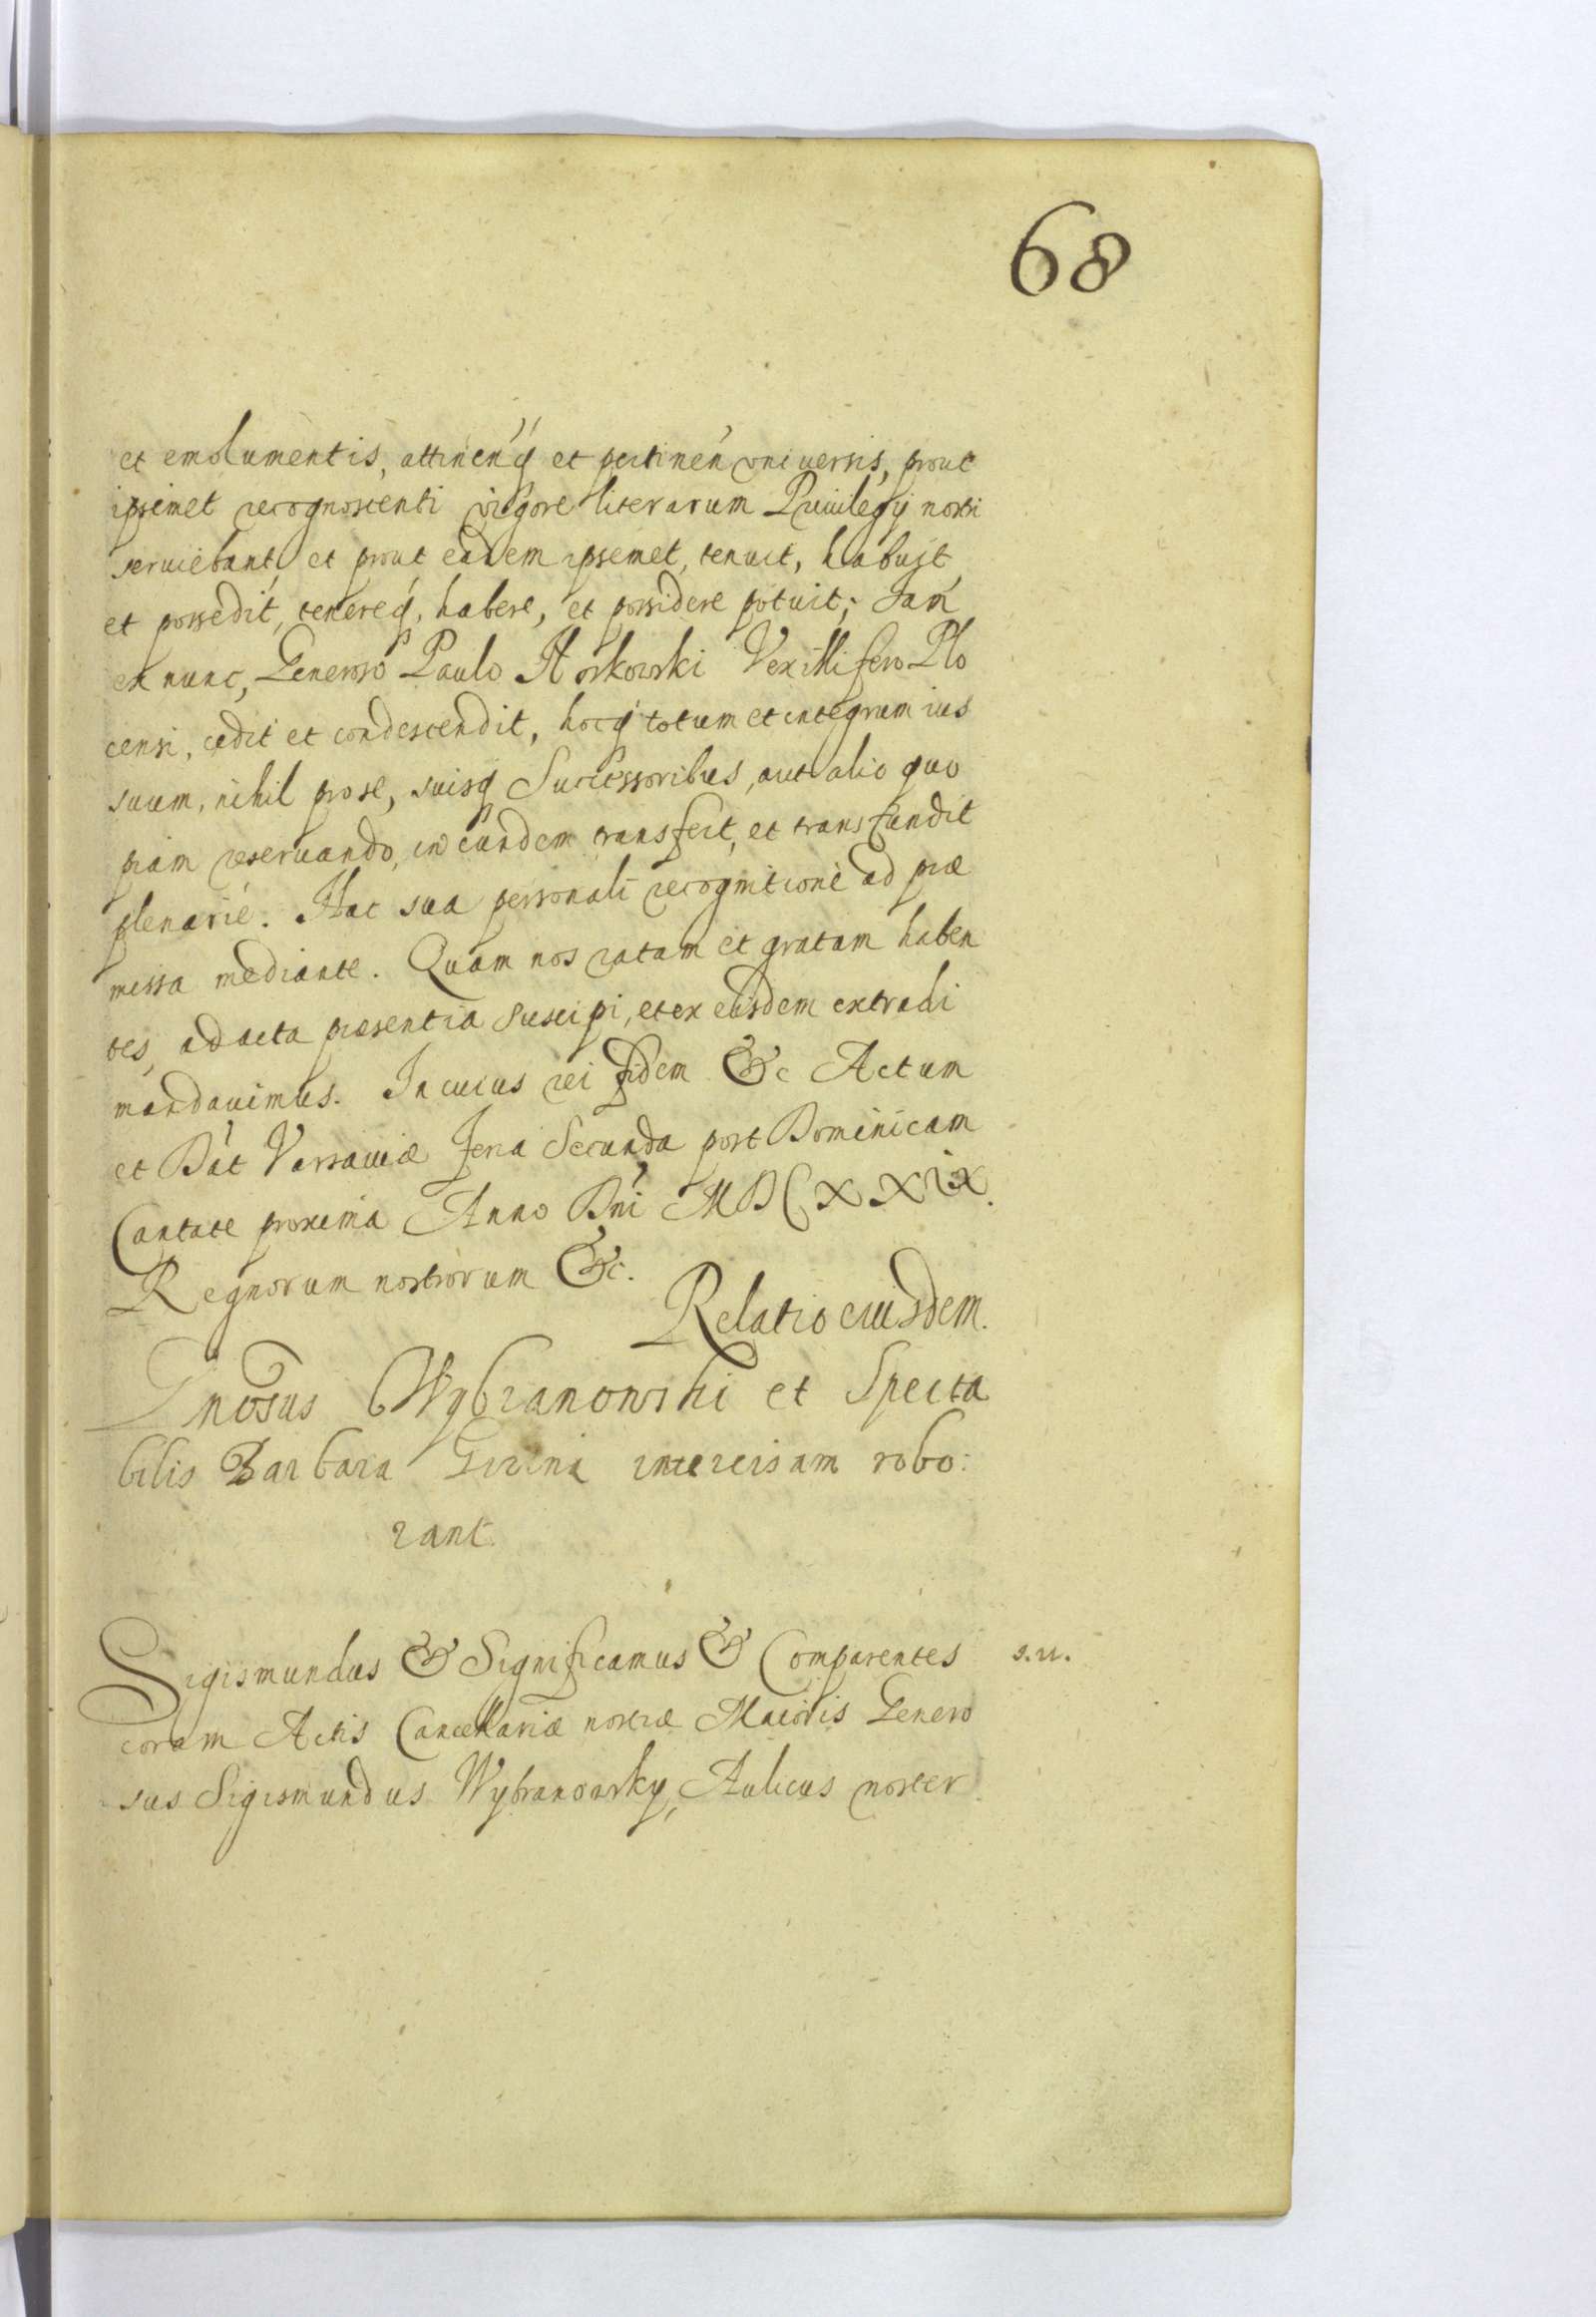 68
et emolumentis, attinen'q́ et pertinen' vniuersis, prout
ipsimet recognoscenti vigore literarum Priuilegÿ nostri
seruiebant, et prout eadem ipsemet, tenuit, habujt,
et possedit, tenereq́, habere, et possidere potuit; Jam
ex nunc, Generoso Paulo Hoskowski Vexillifero Plo
censi, cedit et condescendit, hocq́ totum et integrum ius
suum, nihil pro se, suisq́ Successoribus, aut alio quo
piam reseruando, in eundem transfert, et transfundit
plenarie. Hac sua personali recognitione ad præ
missa mediante. Quam nos ratam et gratam haben
tes, ad acta præsentia suscipi, et ex eisdem extradi
mandauimus. In cuius rei fidem &c Actum
et Dat' Varsauiæ feria Secunda post Dominicam
Cantate proxima Anno Dni' MDCXXIX.
Regnorum nostrorum &c.
Relatio eiusdem.
Gnosus Wybranowski et Specta
bilis Barbara intercisam robo:
rant
Sigismundus & Significamus & Comparentes s.u.
coram Actis Cancellariæ nostræ Maioris Genero
sus Sigismundus Wybranowsky, Aulicus noster